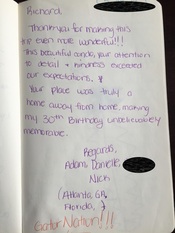 Richard,
Thank you for making this
trip even more wonderful!!!
This beautiful condo, your attention
to detail & kindness exceeded
our expectations.
Your place was truly a
home away from home, making
my 30th Birthday unbelievably
memorable.
Regards,
Adam, Danielle,
Nick
(Atlanta, GA,
Florida, )
Gator Nation!!!